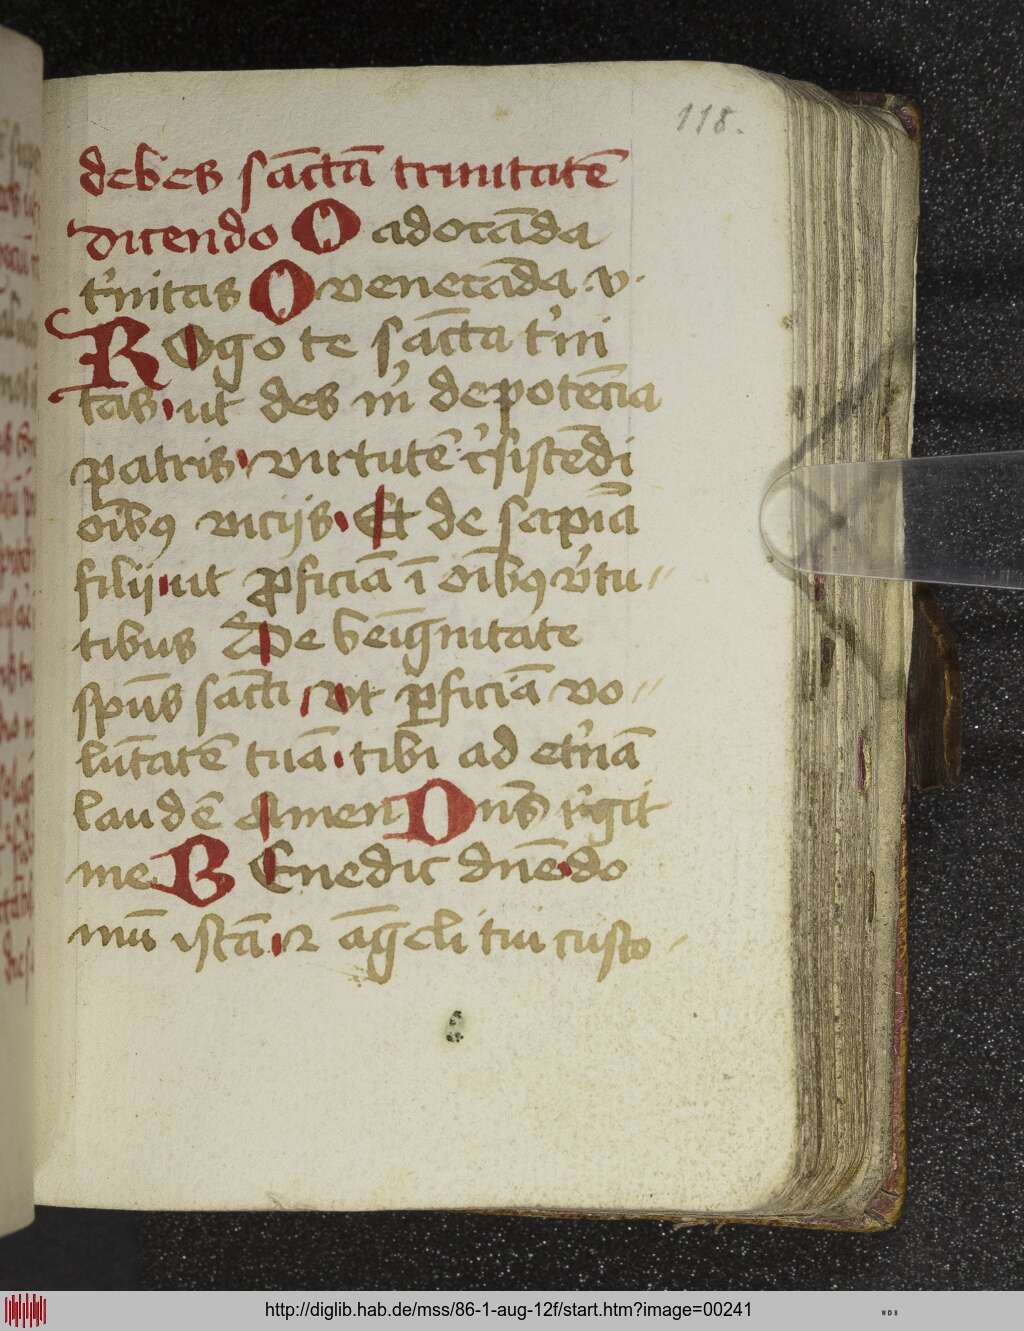 118.
debes sāctā trinitatē
dicendo O adorāda
t'nitas O venerāda v.
ROgo te sāctā t'ni
tas ut des m' de potēcia
patris virtutē r'sistēdi
oībꝯ vicijs Et de sapīa
filij ut ꝓficiā ī oībꝯ v'tu
tibus De beīgnitate
spūs sācti ut ꝑficiā vo
lūtatē tuā tibi ad et'nā
laudē Amen Dn̄s r'git
me BEnedic dn̄e do
mū istā ⁊ āgeli tui custo
http://diglib.hab.de/mss/86-1-aug-12f/start.htm?image=00241
WDB